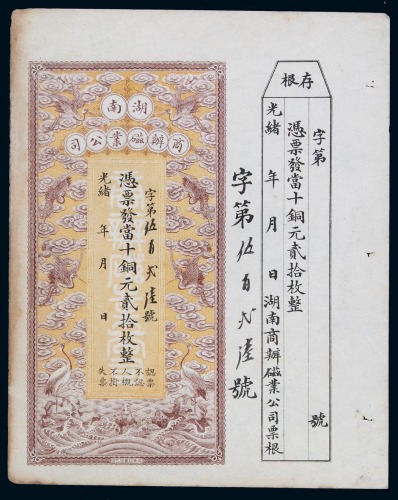 湖南
商辦磁業公司
字第伍百弍陸號
憑票發當十銅元貳拾枚整
光緒 年 月 日
認票不認人概不掛失票
字第伍百弍陸號
存根
字第 號
憑票發當十銅元貳拾枚整
光緒 年 月 日湖南商辦磁業公司票根